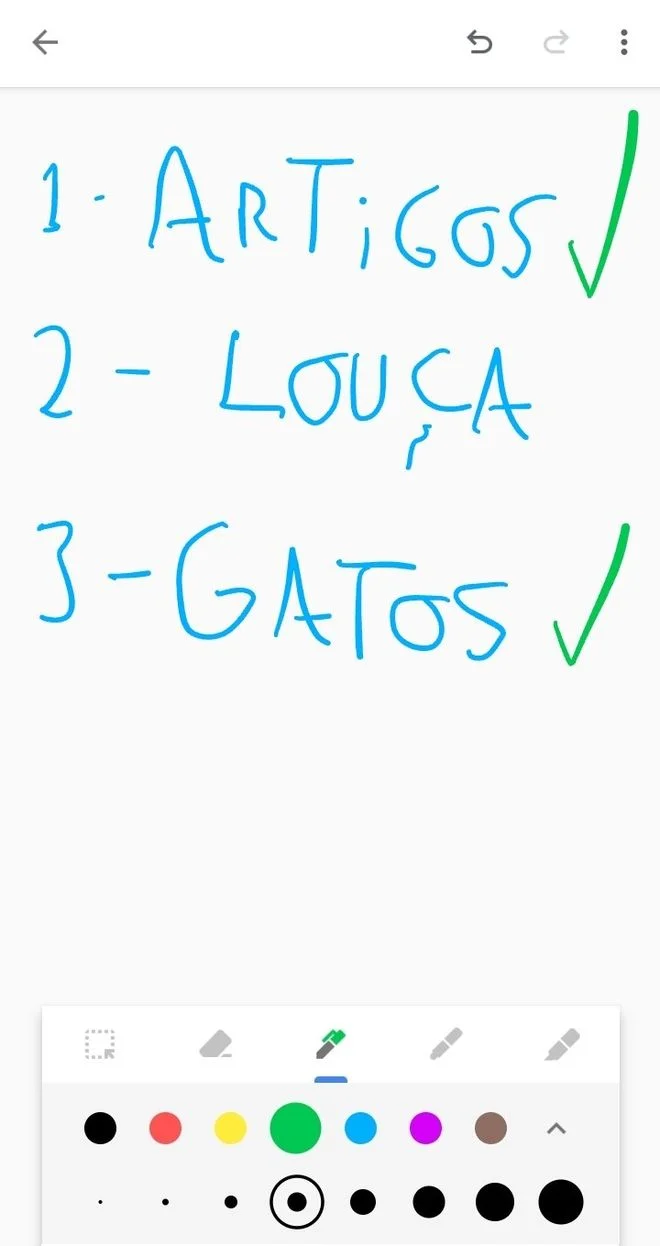 1 - ARTiGOS ✓
2 - LOUÇA
3 - GATOS ✓